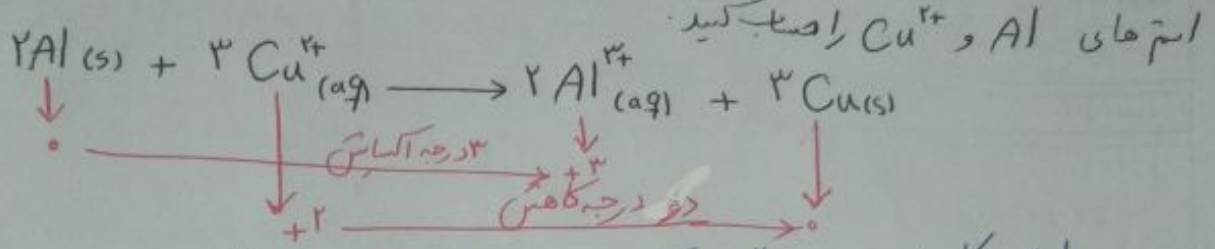 اتم های Al و Cu²⁺ را حساب کنید.
۲Al (s) + ۳Cu²⁺(aq) → ۲Al³⁺(aq) + ۳Cu(s)
۰ ۳ درجه اکسایش +۳
+۲ دو درجه کاهش ۰